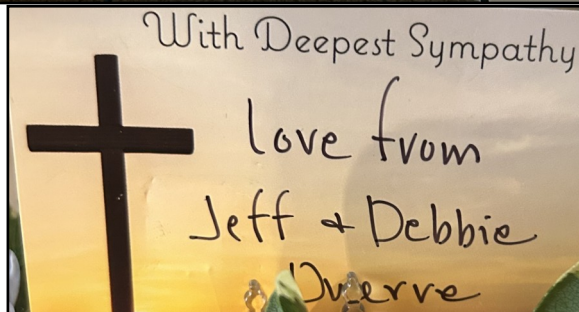 With Deepest Sympathy
love from
Jeff & Debbie